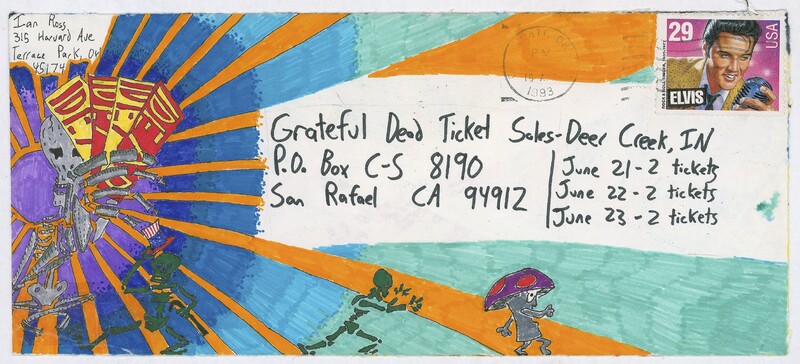 Ian Ross
315 Harvard Ave
Terrace Park, OH
45174
DEAD
DEAD
29
USA
ELVIS
1993
Grateful Dead Ticket Sales-Deer Creek, IN
P.O. Box C-S 8190
San Rafael CA 94912
June 21-2 tickets
June 22-2 tickets
June 23-2 tickets